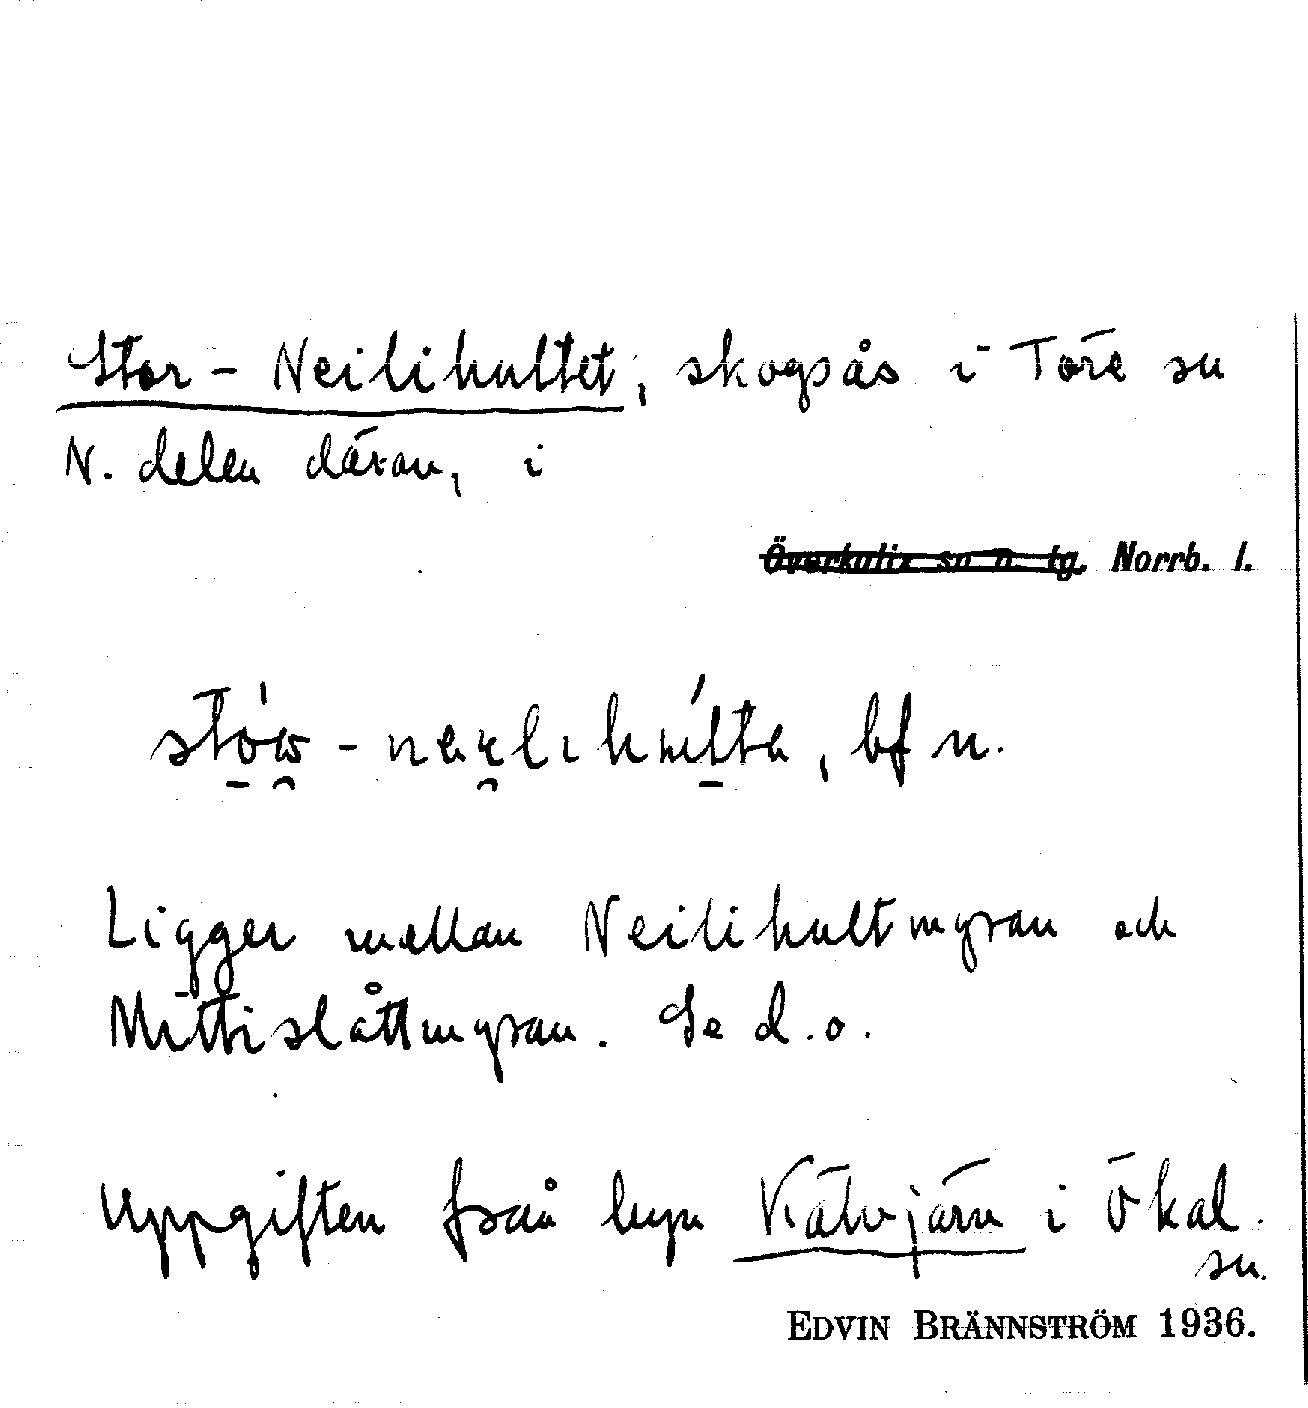 Stor-Neilihultet, skogsås i Töre sn
N. delen därav, i
Överkalix sn n. tg. Norrb. l.
bf n.
Ligger mellan Neilihultmyran och
Mittislåttmyran. Se d.o.
Uppgiften från byn Kälvjärv i Ökal.
sn.
EDVIN BRÄNNSTRÖM 1936.